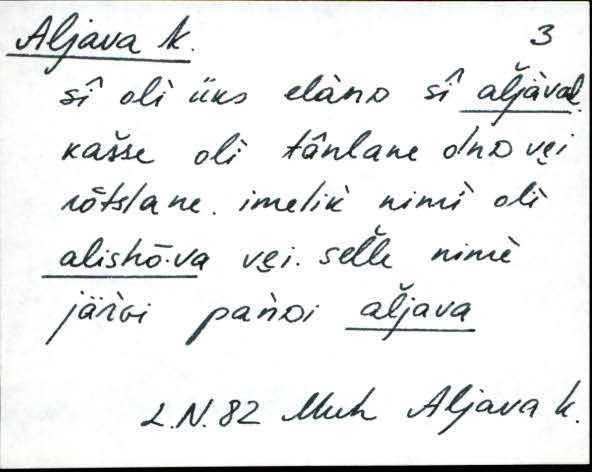 Aljava k. 3
sî olì üks elànᴅ sî al̆jàval.
kašše olì tânlane olnᴅ vei
rõtslane. imelik nimì olì
alishõ·va vei. sell̆e nimè
jär̀vi pan̆ᴅi al̆java
L.N. 82 Muh Aljava k.